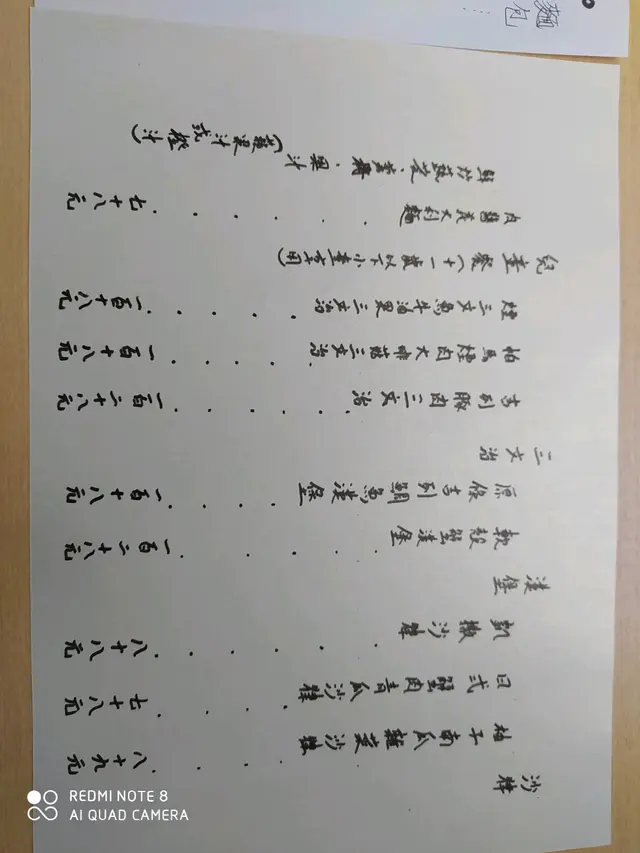 沙律
柚子南瓜雜菜沙律 . . . . 八十九元
日式蟹肉青瓜沙律 . . . . 七十八元
凱撒沙律 . . . . . . 八十八元
漢堡
軟殼蟹漢堡 . . . . 一百二十八元
原條吉列鯛魚漢堡 . . . . 一百十八元
三文治
吉列豚肉三文治 . . . . . . 一百二十八元
帕馬煙肉大啡菇三文治 . . . . 一百十八元
煙三文魚牛油果三文治 . . . . . 一百十八元
兒童餐(十一歲以下小童享用)
肉醬意大利麵 . . . . . . 七十八元
鮮炒蔬菜、薯角、果汁
(蘋果汁或橙汁)
麵包
REDMI NOTE 8
AI QUAD CAMERA